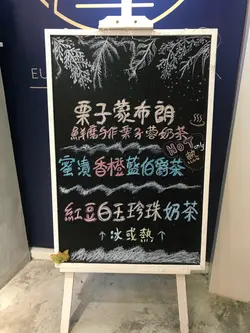 栗子蒙布朗
鮮磨手作栗子蓉奶茶
HOT only
蜜漬香橙藍伯爵茶
紅豆白玉珍珠奶茶
↑冰或熱↑